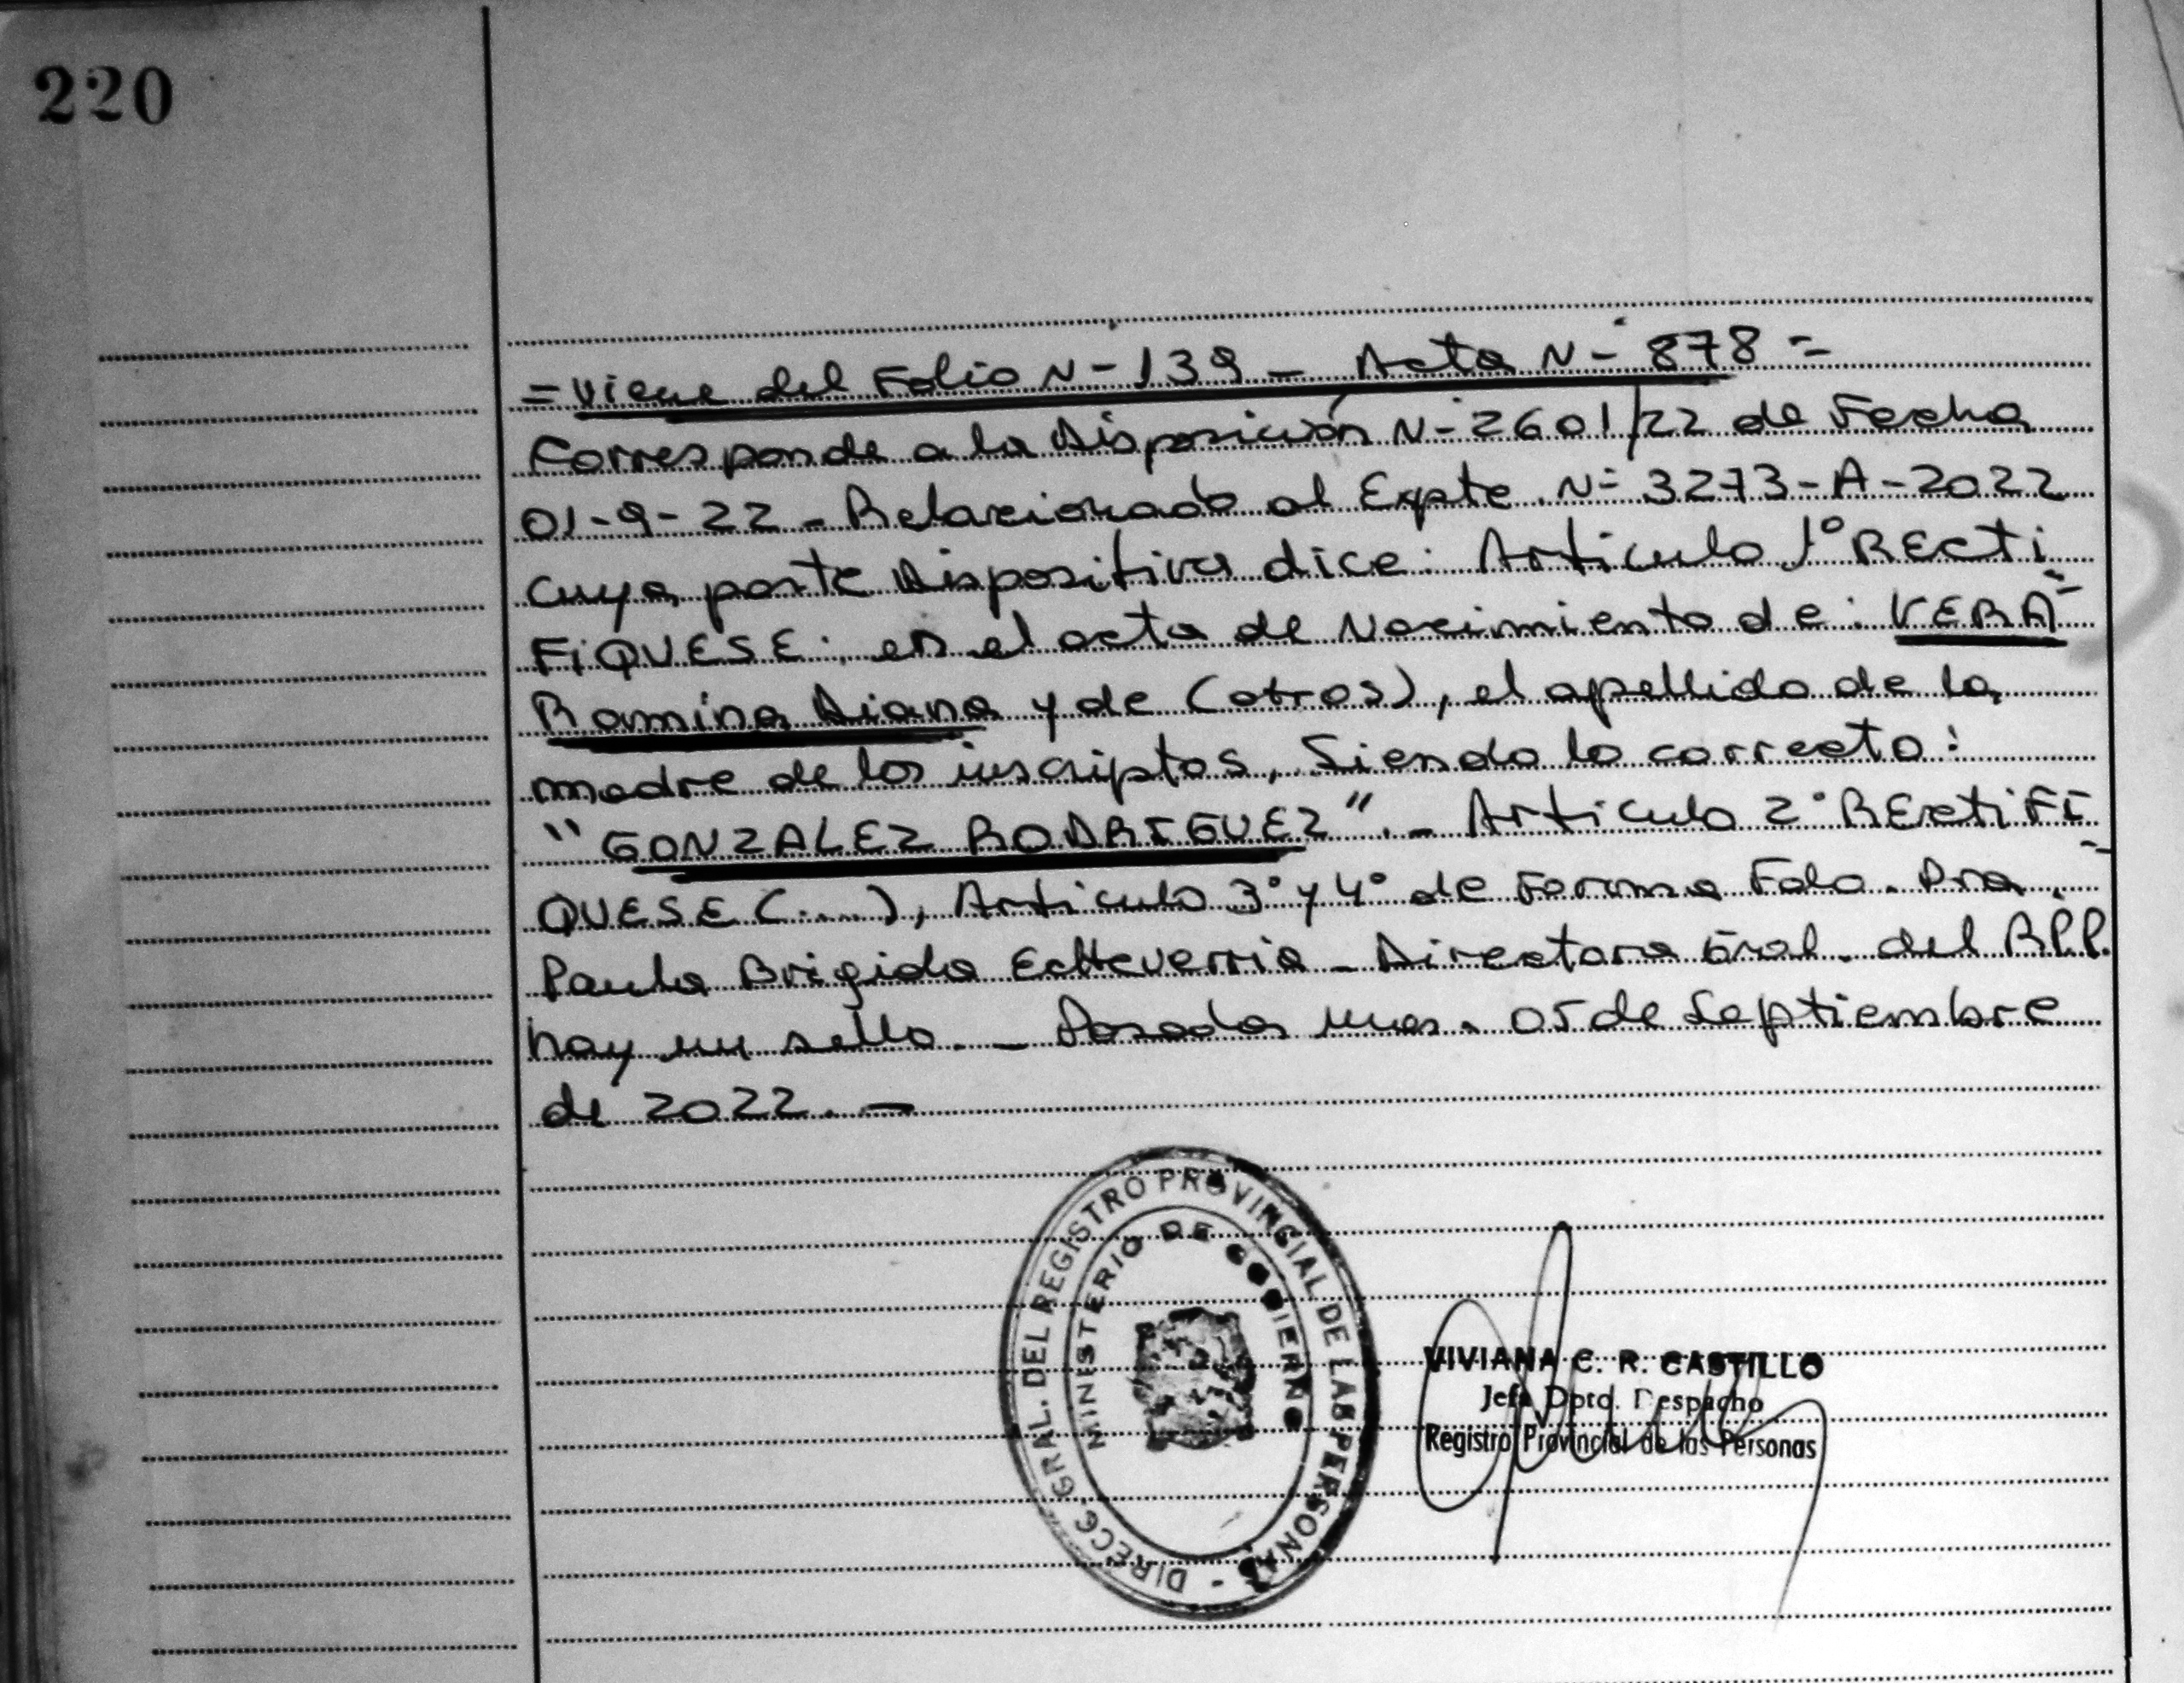 220
= Viene del Folio N- 139 - Acta N- 878 =
Corresponde a la Disposición N- 2601/22 de Fecha
01-9-22 - Relacionado al Expte. N- 3273-A-2022
cuya parte Dispositiva dice: Articulo 1° RECTI
FIQUESE: en el acta de Nacimiento de: VERA =
Ramina Diana y de (otros), el apellido de la
madre de los inscriptos, Siendo lo correcto:
"GONZALEZ RODRIGUEZ". - Articulo 2° RECTIFI
QUESE (....), Articulo 3° y 4° de Forma Fdo. Dra. =
Paula Brigida Echeverria - Directora Gral. del R.P.P.
hay un sello. - Posadas mnes. 05 de Septiembre
de 2022. -
DIRECC. GRAL. DEL REGISTRO PROVINCIAL DE LAS PERSONAS -
MINISTERIO DE GOBIERNO
VIVIANA C. R. CASTILLO
Jefa Dpto. Despacho
Registro Provincial de las Personas